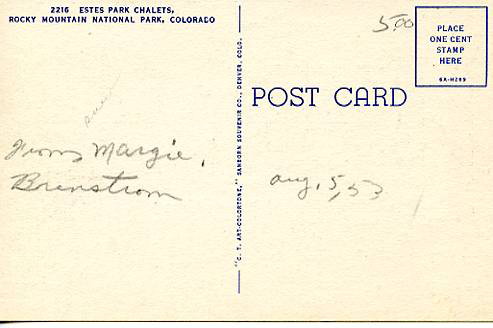 2216 ESTES PARK CHALETS,
ROCKY MOUNTAIN NATIONAL PARK, COLORADO
5.00
PLACE
ONE CENT
STAMP
HERE
6A-H289
POST CARD
From Margie
Brenstrom
Aug. 5, 53
"C. T. ART-COLORTONE," SANBORN SOUVENIR CO., DENVER, COLO.